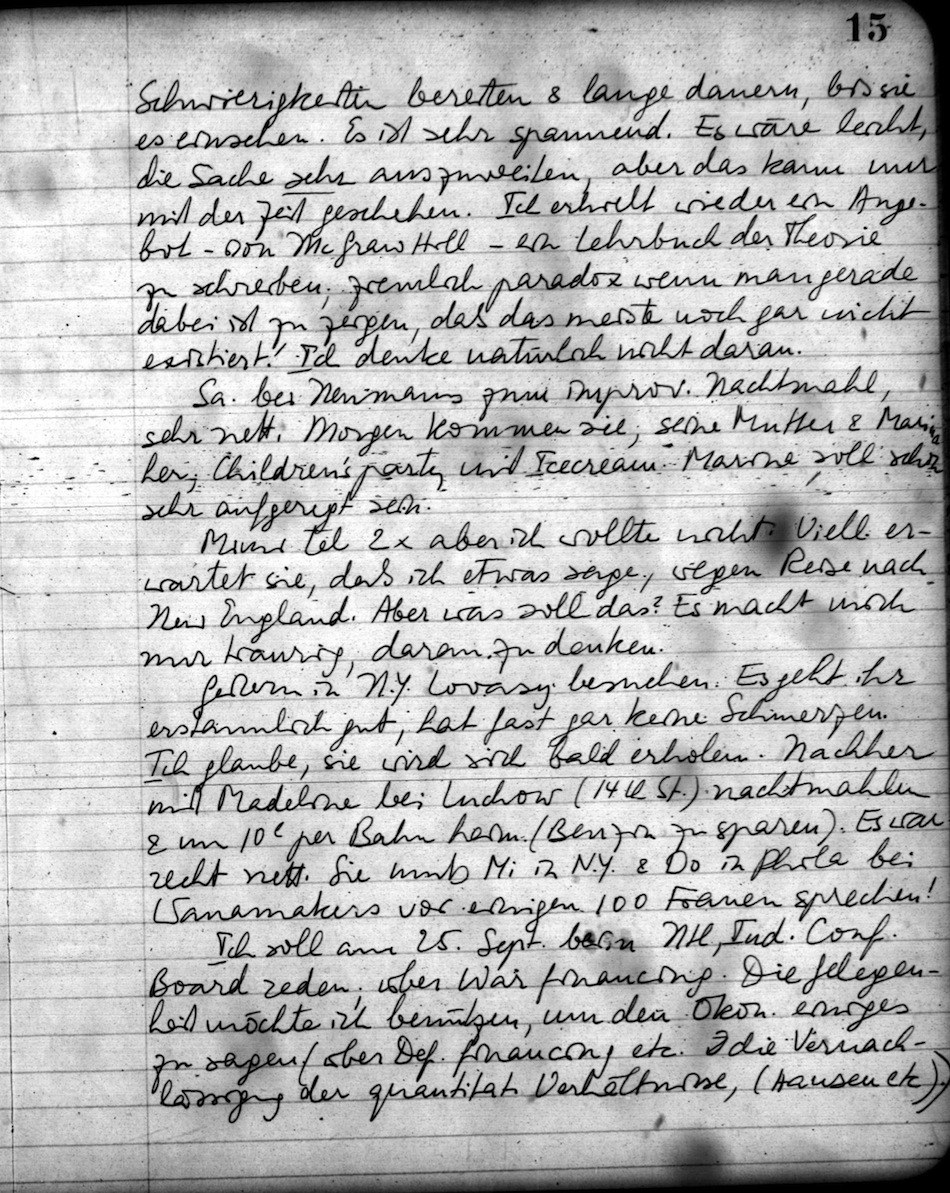 15
Schwierigkeiten bereiten & lange dauern, bis sie
es einsehen. Es ist sehr spannend. Es wäre leicht,
die Sache sehr auszuweiten, aber das kann nur
mit der Zeit geschehen. Ich erhielt wieder ein Ange-
bot – von McGraw Hill – ein Lehrbuch der Theorie
zu schreiben; ziemlich paradox wenn man gerade
dabei ist zu zeigen, daß das meiste noch gar nicht
existiert! Ich denke natürlich nicht daran.
Sa. bei Neumanns zum improv. Nachtmahl,
sehr nett. Morgen kommen sie, seine Mutter & Marina
her; Children's party mit Icecream. Marine soll schon
sehr aufgeregt sein.
Mimi tel 2x aber ich wollte nicht. Viell. er-
wartet sie, daß ich etwas sage, wegen Reise nach
New England. Aber was soll das? Es macht mich
nur traurig, daran zu denken.
Gestern in N.Y. Lovasy besuchen. Es geht ihr
erstaunlich gut, hat fast gar keine Schmerzen.
Ich glaube, sie wird sich bald erholen. Nachher
mit Madeline bei Luchow (14th St.) nachtmahlen
& um 10ᶜ per Bahn heim (Benzin zu sparen). Es war
recht nett. Sie muß Mi in N.Y. & Do in Phila bei
Wanamakers vor einigen 100 Frauen sprechen!
Ich soll am 25. Sept. beim Ntl. Ind. Conf.
Board reden, über War financing. Die Gelegen-
heit möchte ich benützen, um den Ökon. einiges
zu sagen (über Def. financing etc. & die Vernach-
lässigung der quantitat. Verhältnisse, (Hansen etc))